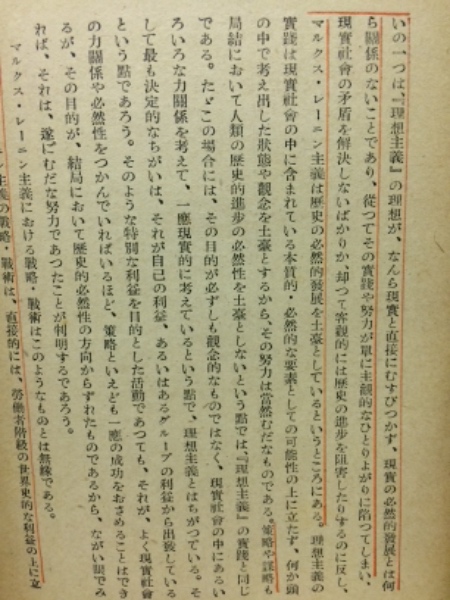 いの一つは、『理想主義』の理想が、なんら現實と直接にむすびつかず、現實の必然的發展とは何
ら關係のないことであり、從つてその實踐や努力が單に主觀的なひとりよがりに陷つてしまい、
現實社會の矛盾を解決しないばかりか、却つて客觀的には歷史の進步を阻害したりするのに反し、
マルクス・レーニン主義は歷史の必然的發展を土臺としているというところにある。理想主義の
實踐は現實社會の中に含まれている本質的・必然的な要素としての可能性の上に立たず、何か頭
の中で考え出した狀態や觀念を土臺とするから、その努力は當然むだなものである。策略や謀略も
局結において人類の歷史的進步の必然性を土臺としないという點では、『理想主義』の實踐と同じ
である。たゞこの場合には、その目的が必ずしも觀念的なものではなく、現實社會の中にあるい
ろいろな力關係を考えて、一應現實的に考えているという點で、理想主義とはちがつている。そ
して最も決定的なちがいは、それが自己の利益、あるいはあるグループの利益から出發している
という點であろう。そのような特別な利益を目的とした活動であつても、それが、よく現實社會
の力關係や必然性をつかんでいればいるほど、策略といえども一應の成功をおさめることはでき
るが、その目的が、結局において歷史的必然性の方向からずれたものであるから、ながい眼でみ
れば、それは、遂にむだな努力であつたことが判明するであろう。
マルクス・レーニン主義における戰略・戰術はこのようなものとは無緣である。
主義の戰略・戰術は、直接的には、勞働者階級の世界史的な利益の上に立